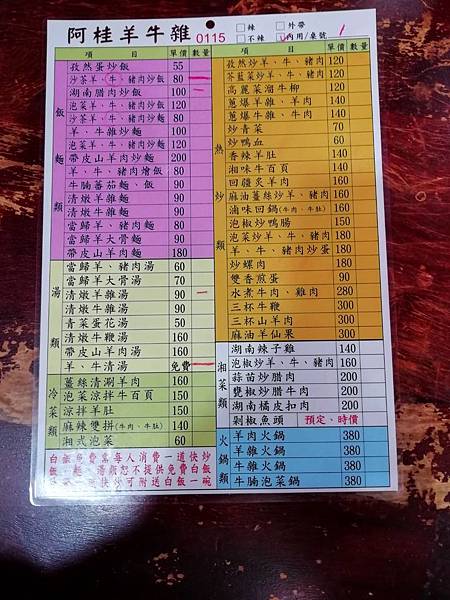 阿桂羊牛雜 0115
辣 外帶
不辣 內用/桌號
項 目 單價 數量
飯麵類
孜然蛋炒飯 55
沙茶羊、牛、豬肉炒飯 80
湖南腊肉炒飯 100
泡菜羊、牛、豬肉炒飯 120
沙茶羊、牛、豬肉炒麵 80
羊、牛雜炒麵 100
泡菜羊、牛、豬肉炒麵 120
帶皮山羊肉炒麵 200
羊、牛、豬肉燴飯 80
牛腩蕃茄麵、飯 90
清燉羊雜麵 90
清燉牛雜麵 90
當歸羊、豬肉麵 80
當歸羊大骨麵 90
帶皮山羊肉麵 180
湯類
當歸羊、豬肉湯 60
當歸羊大骨湯 70
清燉羊雜湯 90
清燉牛雜湯 90
青菜蛋花湯 50
清燉牛鞭湯 160
帶皮山羊肉湯 160
羊、牛清湯 免費
冷菜類
薑絲清涮羊肉 160
泡菜涼拌牛百頁 150
涼拌羊肚 150
麻辣雙拼(牛肉、牛肚) 140
湘式泡菜 60
白飯免費需每人消費一道快炒
項 目 單價 數量
熱炒類
孜然炒羊、牛、豬肉 120
芥藍菜炒羊、牛、豬肉 120
高麗菜溜牛柳 120
蔥爆羊雜、羊肉 120
蔥爆牛雜、牛肉 120
炒青菜 70
炒鴨血 60
香辣羊肚 140
湘味牛百頁 140
回疆炙羊肉 160
麻油薑絲炒羊、豬肉 160
滷味回鍋(牛肉、牛肚) 160
泡椒炒鴨腸 150
泡菜炒羊、牛、豬肉 180
羊、牛、豬肉炒蛋 180
炒螺肉 160
雙香煎蛋 90
水煮牛肉、雞肉 280
三杯牛鞭 300
三杯山羊肉 300
麻油羊仙果 300
湘菜類
湖南辣子雞 140
泡椒炒羊、牛、豬肉 160
蒜苗炒腊肉 200
甕椒炒腊牛肉 200
湖南橘皮扣肉 200
剁椒魚頭 預定、時價
火鍋類
羊肉火鍋 380
羊雜火鍋 380
牛雜火鍋 380
牛腩泡菜鍋 380